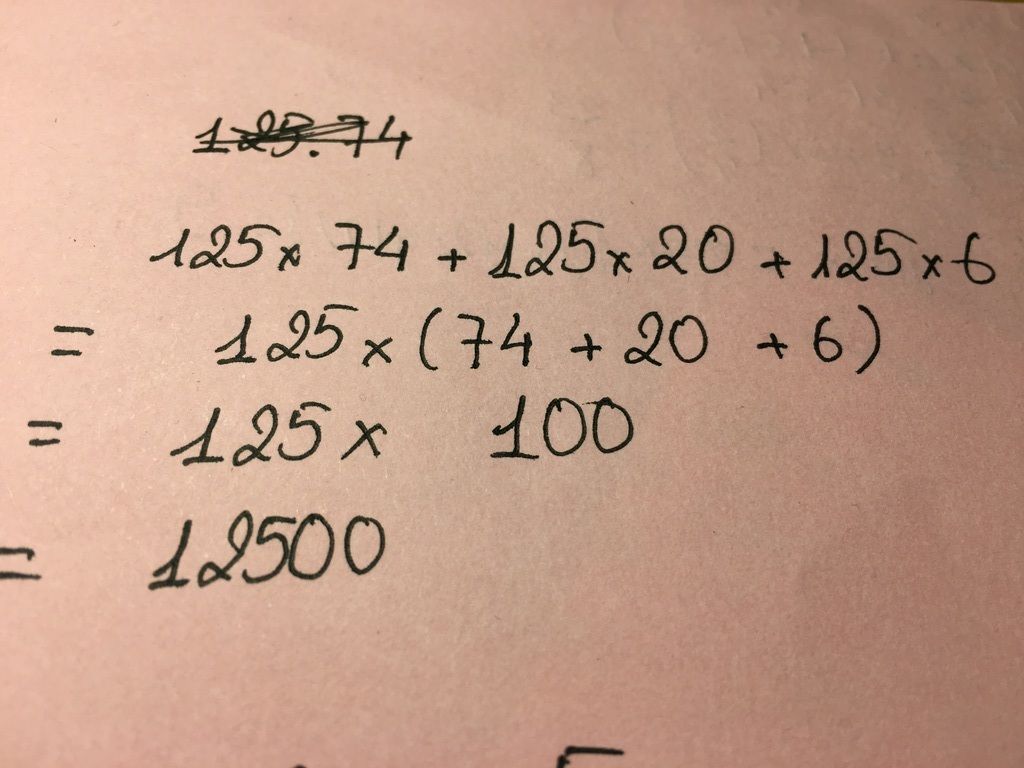 125.74
125 × 74 + 125 × 20 + 125 × 6
= 125 × (74 + 20 + 6)
= 125 × 100
= 12500